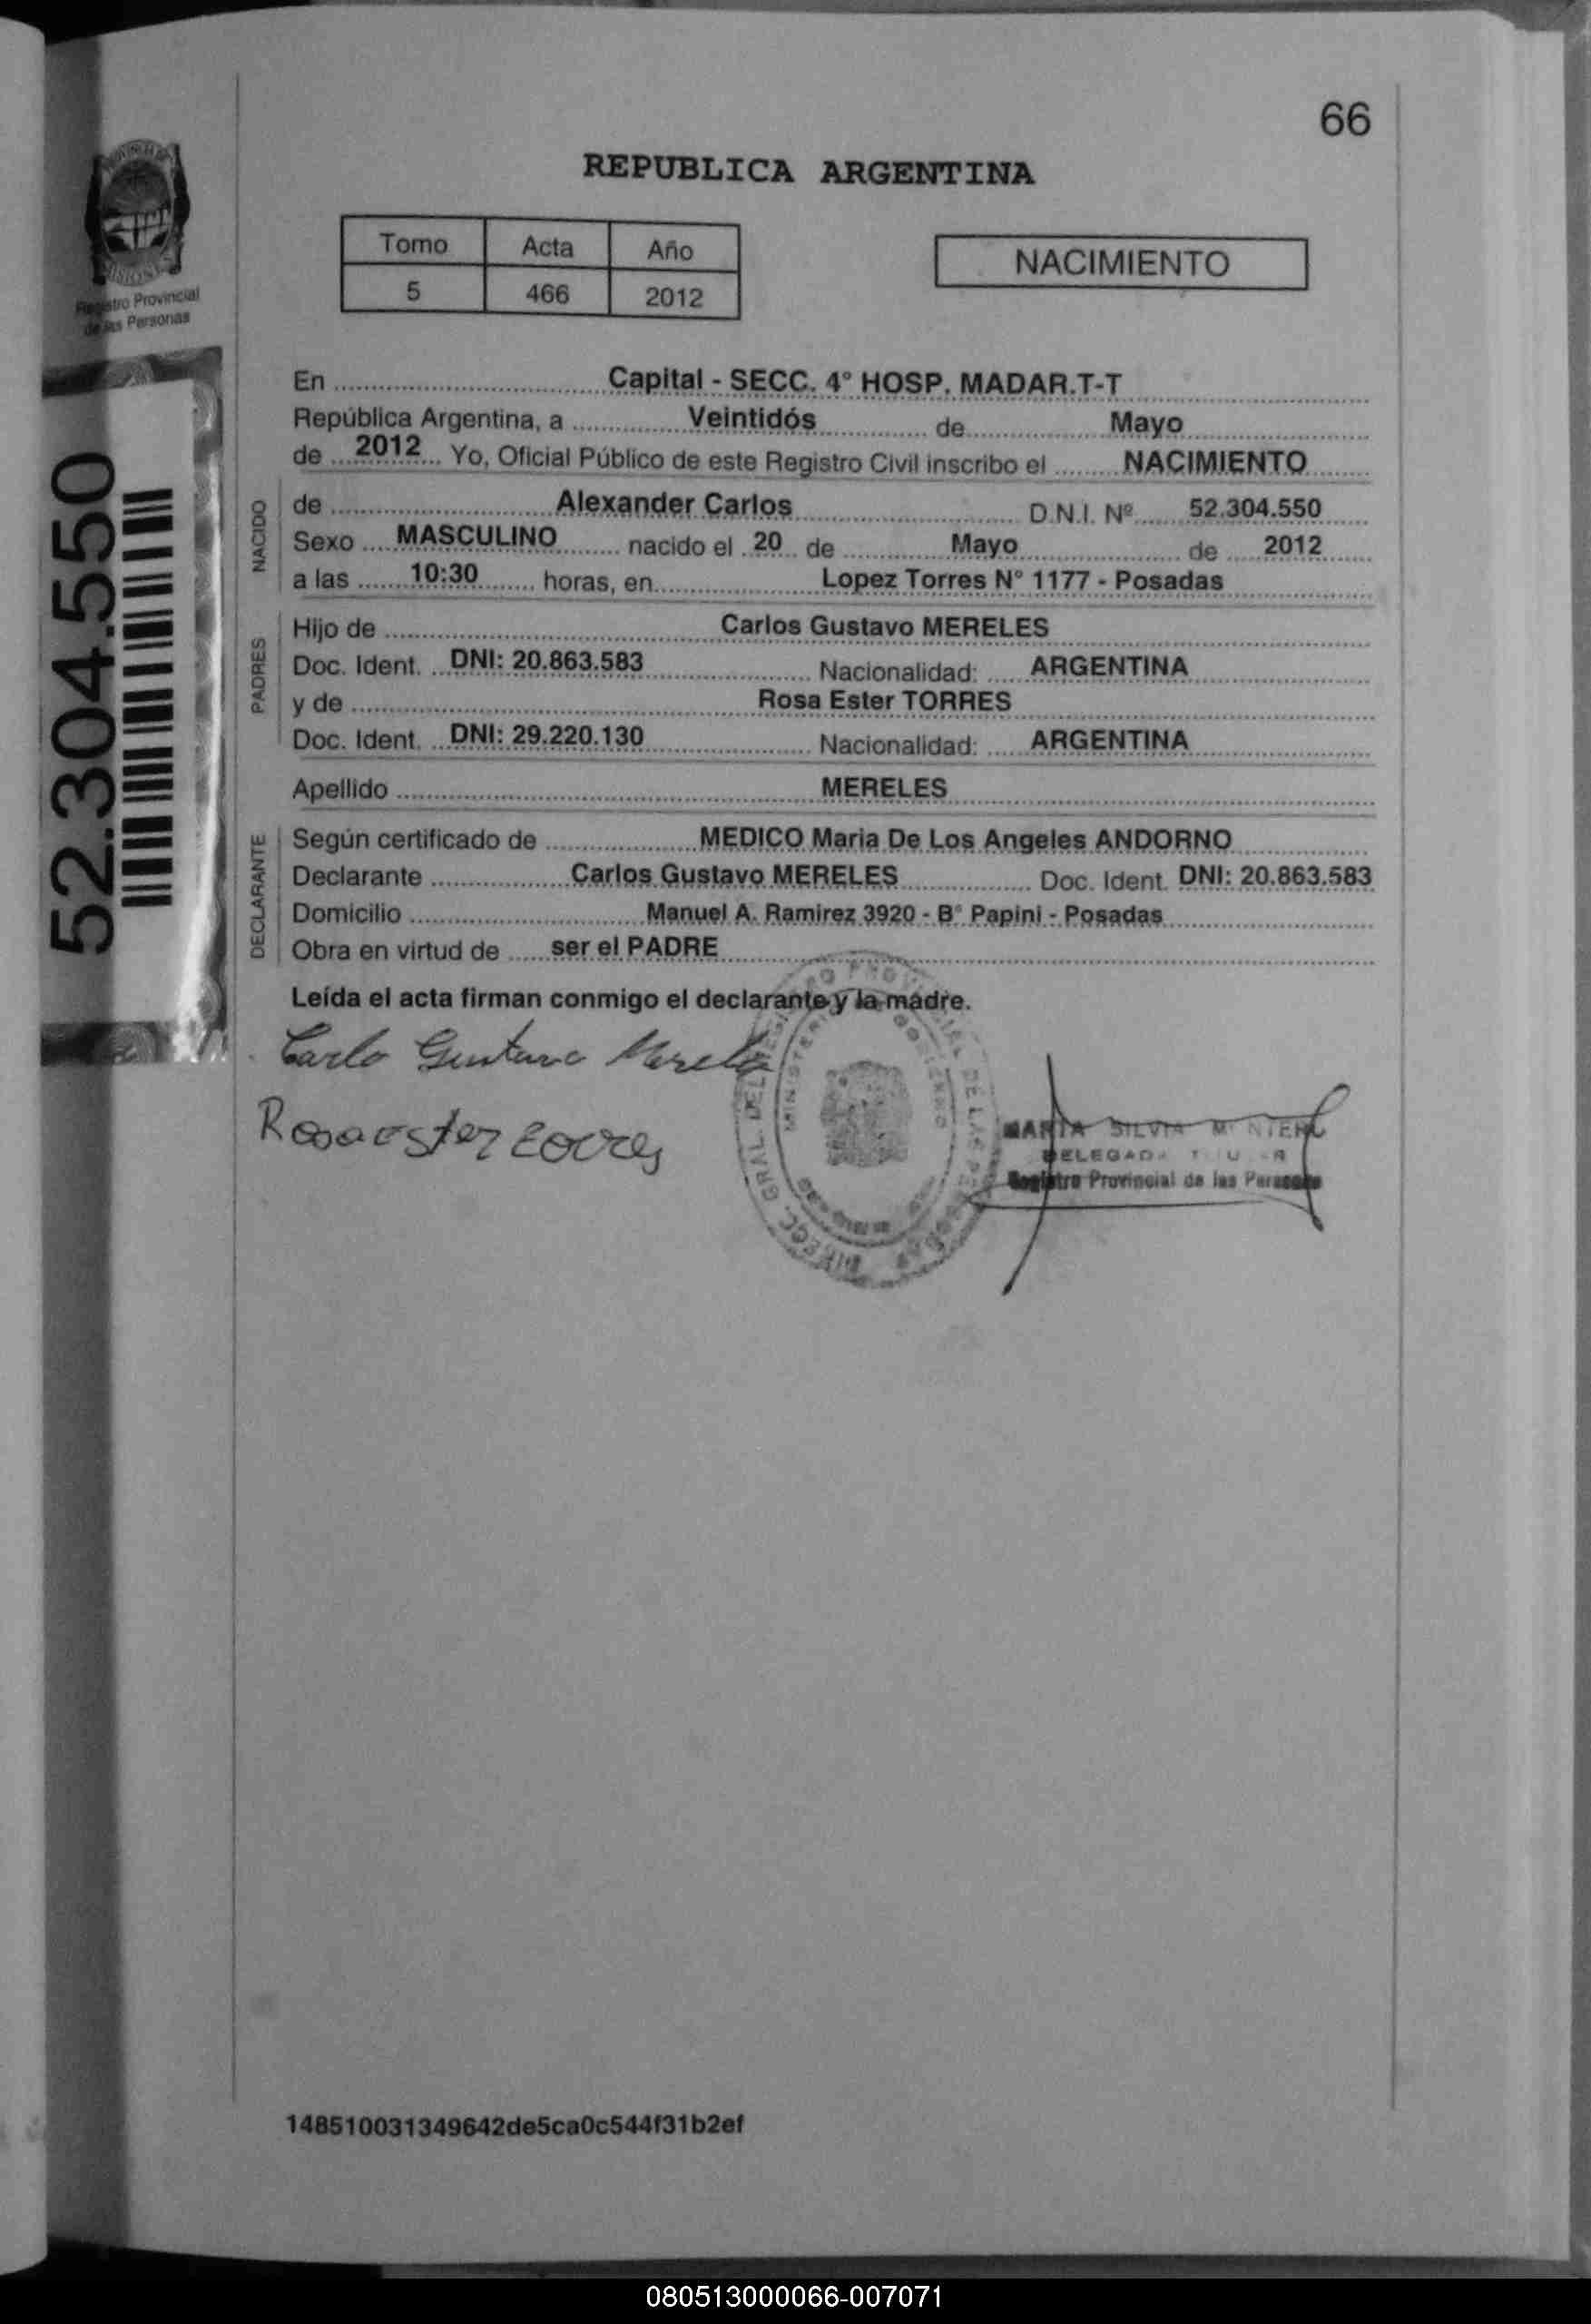 66
REPUBLICA ARGENTINA
Tomo Acta Año
5 466 2012
NACIMIENTO
PROVINCIA DE
MISIONES
Registro Provincial
de las Personas
52.304.550
En Capital - SECC. 4° HOSP. MADAR.T-T
República Argentina, a Veintidós de Mayo
de 2012 Yo, Oficial Público de este Registro Civil inscribo el NACIMIENTO
NACIDO
de Alexander Carlos D.N.I. Nº 52.304.550
Sexo MASCULINO nacido el 20 de Mayo de 2012
a las 10:30 horas, en Lopez Torres N° 1177 - Posadas
PADRES
Hijo de Carlos Gustavo MERELES
Doc. Ident. DNI: 20.863.583 Nacionalidad: ARGENTINA
y de Rosa Ester TORRES
Doc. Ident. DNI: 29.220.130 Nacionalidad: ARGENTINA
Apellido MERELES
DECLARANTE
Según certificado de MEDICO Maria De Los Angeles ANDORNO
Declarante Carlos Gustavo MERELES Doc. Ident. DNI: 20.863.583
Domicilio Manuel A. Ramirez 3920 - B° Papini - Posadas
Obra en virtud de ser el PADRE
Leída el acta firman conmigo el declarante y la madre.
Carlo Gustavo Mereles
Rosa ester torres
DIRECC. GRAL. DEL REGISTRO PROVINCIAL DE LAS PERSONAS
MINISTERIO GOBIERNO
MARIA SILVIA
Registro Provincial de las Personas
148510031349642de5ca0c544f31b2ef
080513000066-007071